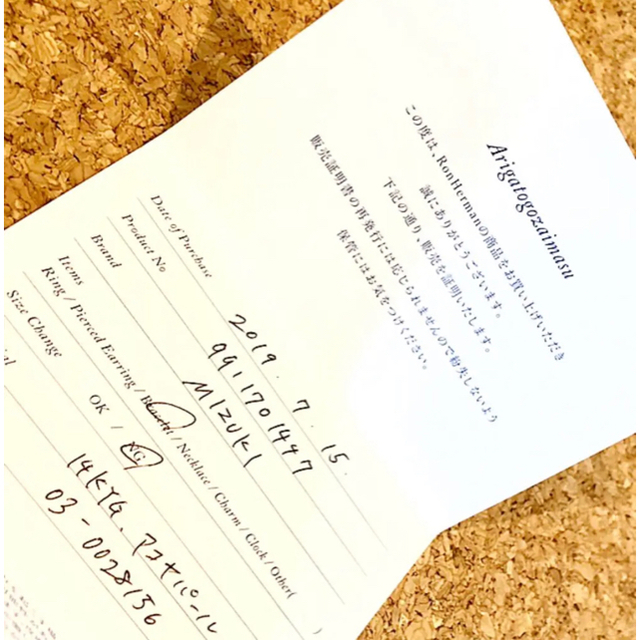 Arigatogozaimasu
この度は、RonHermanの商品をお買い上げいただき
誠にありがとうございます。
下記の通り、販売を証明いたします。
販売証明書の再発行には応じられませんので紛失しないよう
保管にはお気をつけください。
Date of Purchase 2019. 7. 15.
Product No 9911701447
Brand MIZUKI
Items
Ring / Pierced Earring / Bracelet / Necklace / Charm / Clock / Other( )
Size Change OK / NG
14KYG、アコヤパール
03-0028136